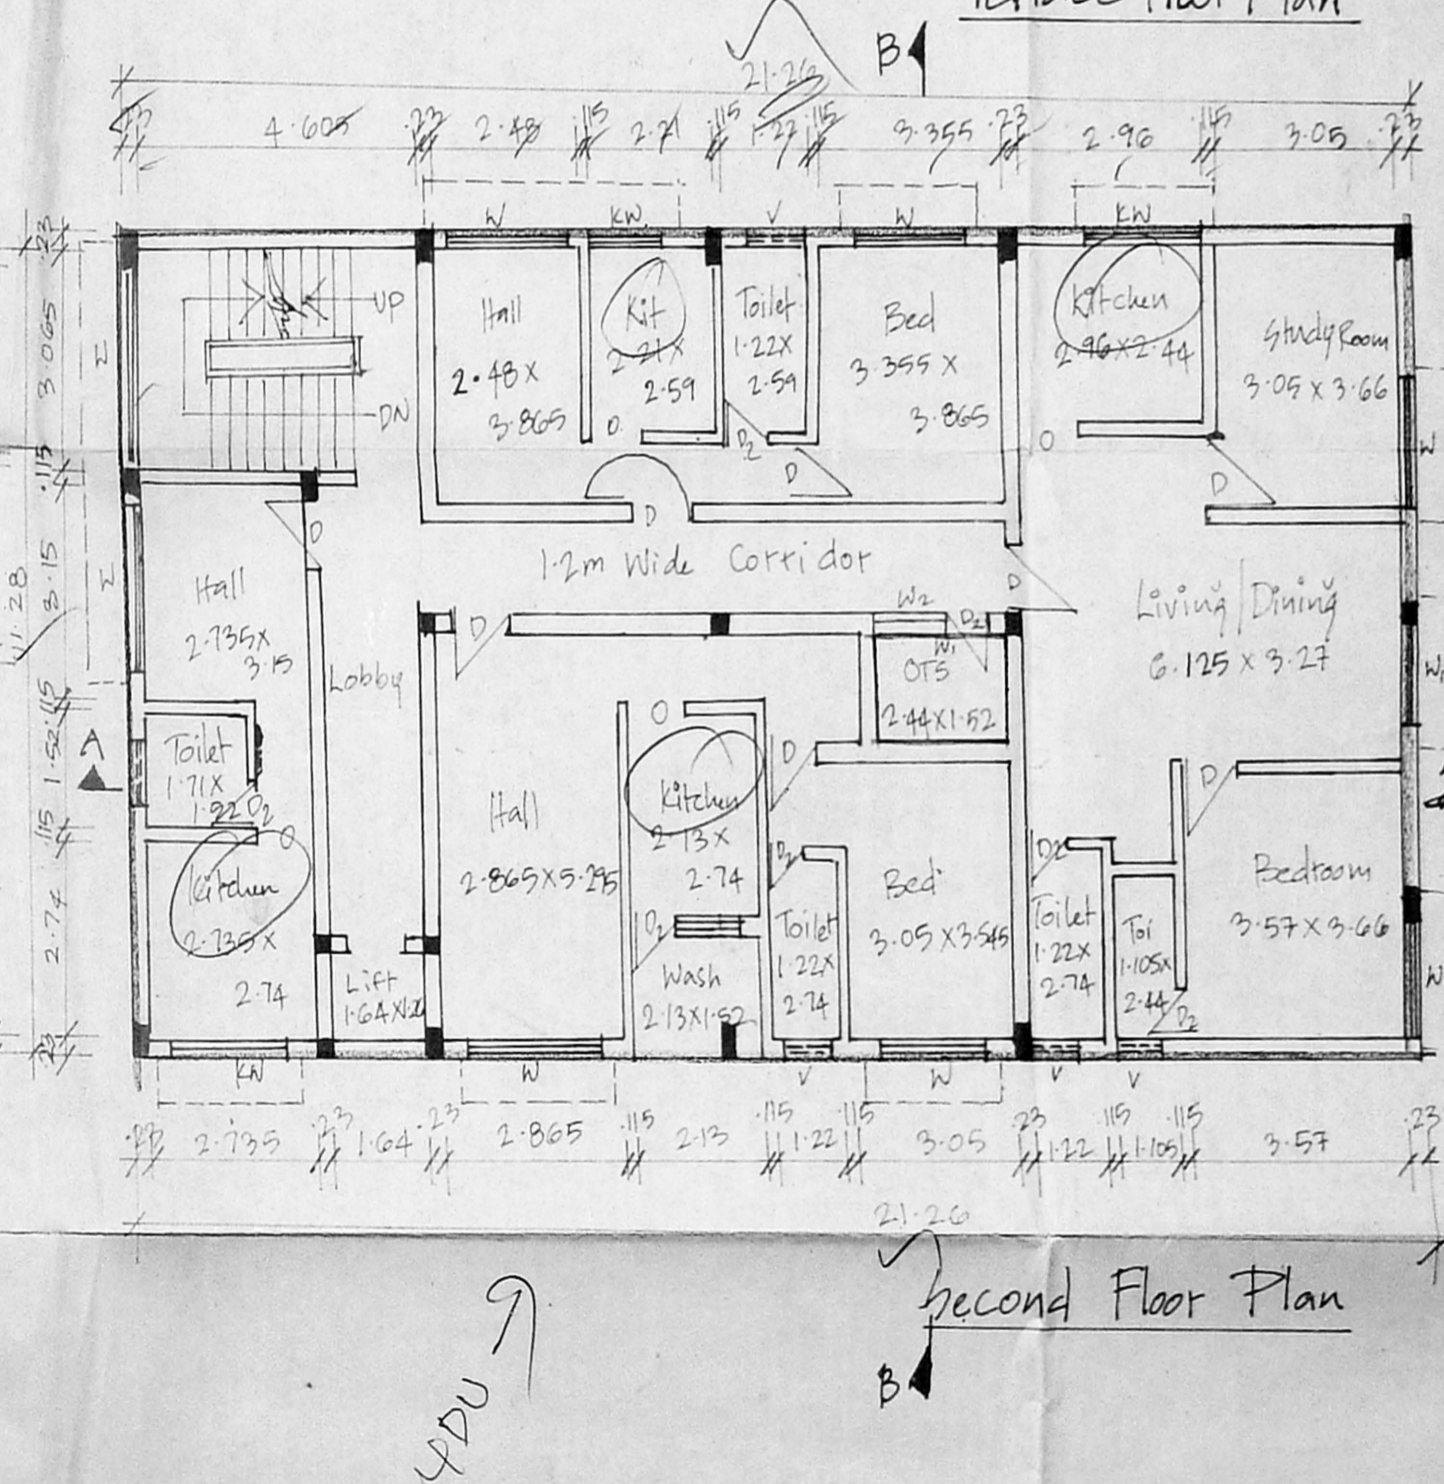 B
21.26
.23 4.605 .23 2.48 .115 2.21 .115 1.22 .115 3.355 .23 2.96 .115 3.05 .23
W KW V W KW
.23
3.065
.115
8.15
.115
1.52
.115
2.74
.23
11.28
W
W
UP
DN
Hall
2.48 X
3.865
Kit
2.21 X
2.59
D
Toilet
1.22X
2.59
D2
Bed
3.355 X
3.865
D
Kitchen
2.96X2.44
O
Study Room
3.05 X 3.66
D
W
D
1.2m Wide Corridor
D
Hall
2.735X
3.15
D
Lobby
D
W2
D2
W1
OTS
2.44X1.52
Living/Dining
6.125 X 3.27
W1
A
Toilet
1.71X
1.22
D2
O
Kitchen
2.735X
2.74
Lift
1.64X1.26
Hall
2.865X5.295
O
Kitchen
2.13X
2.74
D2
Wash
2.13X1.52
D
D2
Toilet
1.22X
2.74
Bed
3.05 X3.545
D2
Toilet
1.22X
2.74
Toi
1.105X
2.44
D2
D
Bedroom
3.57 X 3.66
W
KW W V W V V
.23 2.735 .23 1.64 .23 2.865 .115 2.13 .115 1.22 .115 3.05 .23 1.22 .115 1.105 .115 3.57 .23
21.26
Second Floor Plan
B
4DU